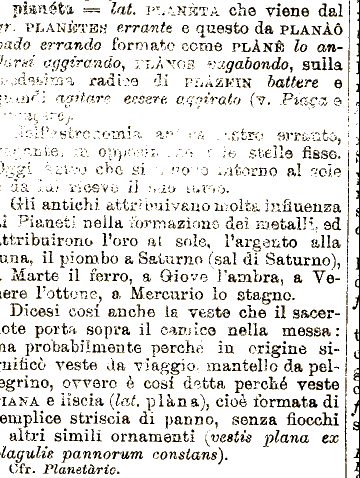 pianéta = lat. PLANÈTA che viene dal
gr. PLANÈTES errante e questo da PLANÀÔ
vado errando formato come PLÀNÊ lo an-
darsi aggirando, PLÀNOS vagabondo, sulla
medesima radice di PLÀZEIN battere e
quindi agitare essere aggirato (v. Piaga e
Nell'astronomia antica astro errante,
vagante, in opposizione alle stelle fisse.
Oggi Astro che si muove intorno al sole
e da lui riceve il suo lume.
Gli antichi attribuivano molta influenza
ai Pianeti nella formazione dei metalli, ed
attribuirono l'oro al sole, l'argento alla
luna, il piombo a Saturno (sal di Saturno),
a Marte il ferro, a Giove l'ambra, a Ve-
nere l'ottone, a Mercurio lo stagno.
Dicesi cosí anche la veste che il sacer-
dote porta sopra il camice nella messa:
ma probabilmente perché in origine si-
gnificò veste da viaggio, mantello da pel-
legrino, ovvero è cosí detta perché veste
PIANA e liscia (lat. plàna), cioè formata di
semplice striscia di panno, senza fiocchi
o altri simili ornamenti (vestis plana ex
plagulis pannorum constans).
Cfr. Planetàrio.